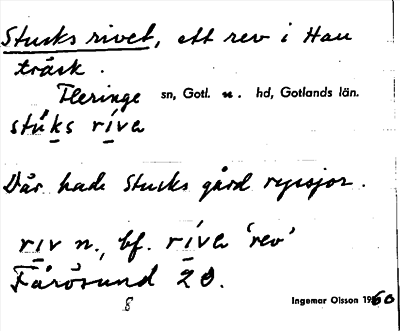 Stucks rivet, ett rev i Hau
träsk.
Fleringe sn, Gotl. n. hd, Gotlands län.
stúks ríva
Där hade Stucks gård ryssjor.
riv n., bf. ríva 'rev'
Fårösund 20.
8
Ingemar Olsson 1960